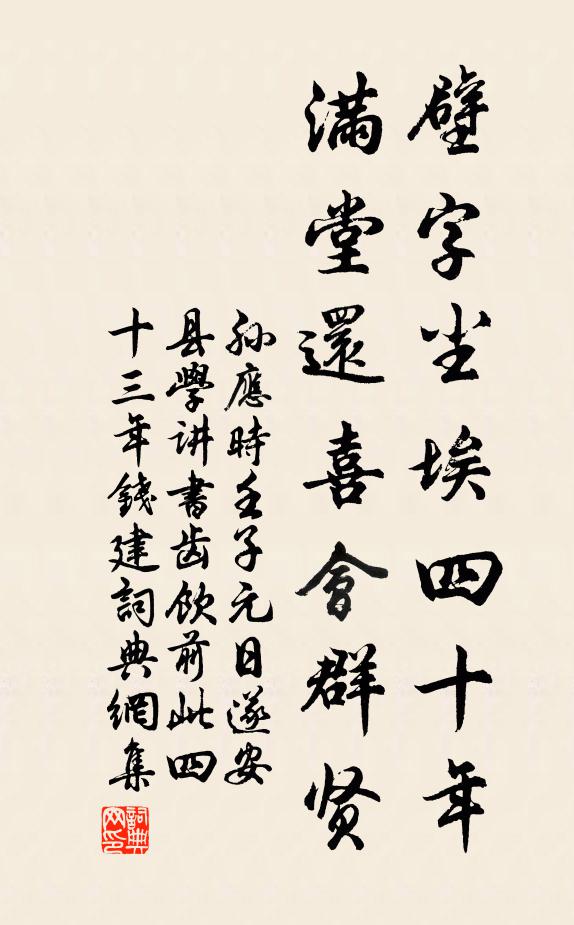 壁字尘埃四十年
满堂還喜會群贤
孙應時壬子元日遂安
县學讲書齿飲前此四
十三年錢建詞典網集
詞典网印